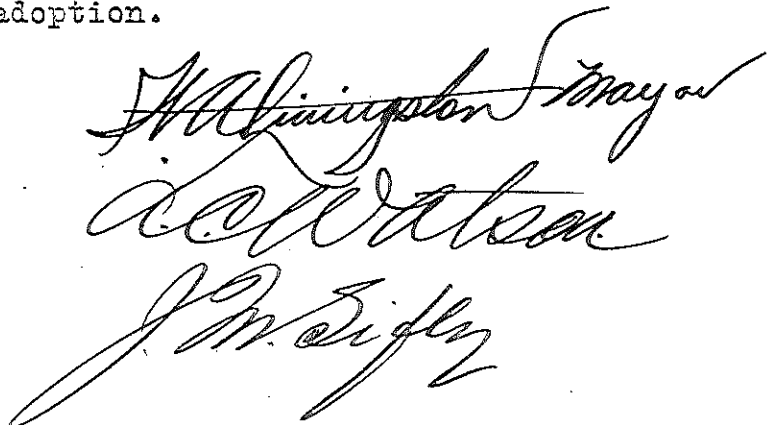 adoption.
W A Livingston Mayor
L.C. Watson
J. M. Sifly